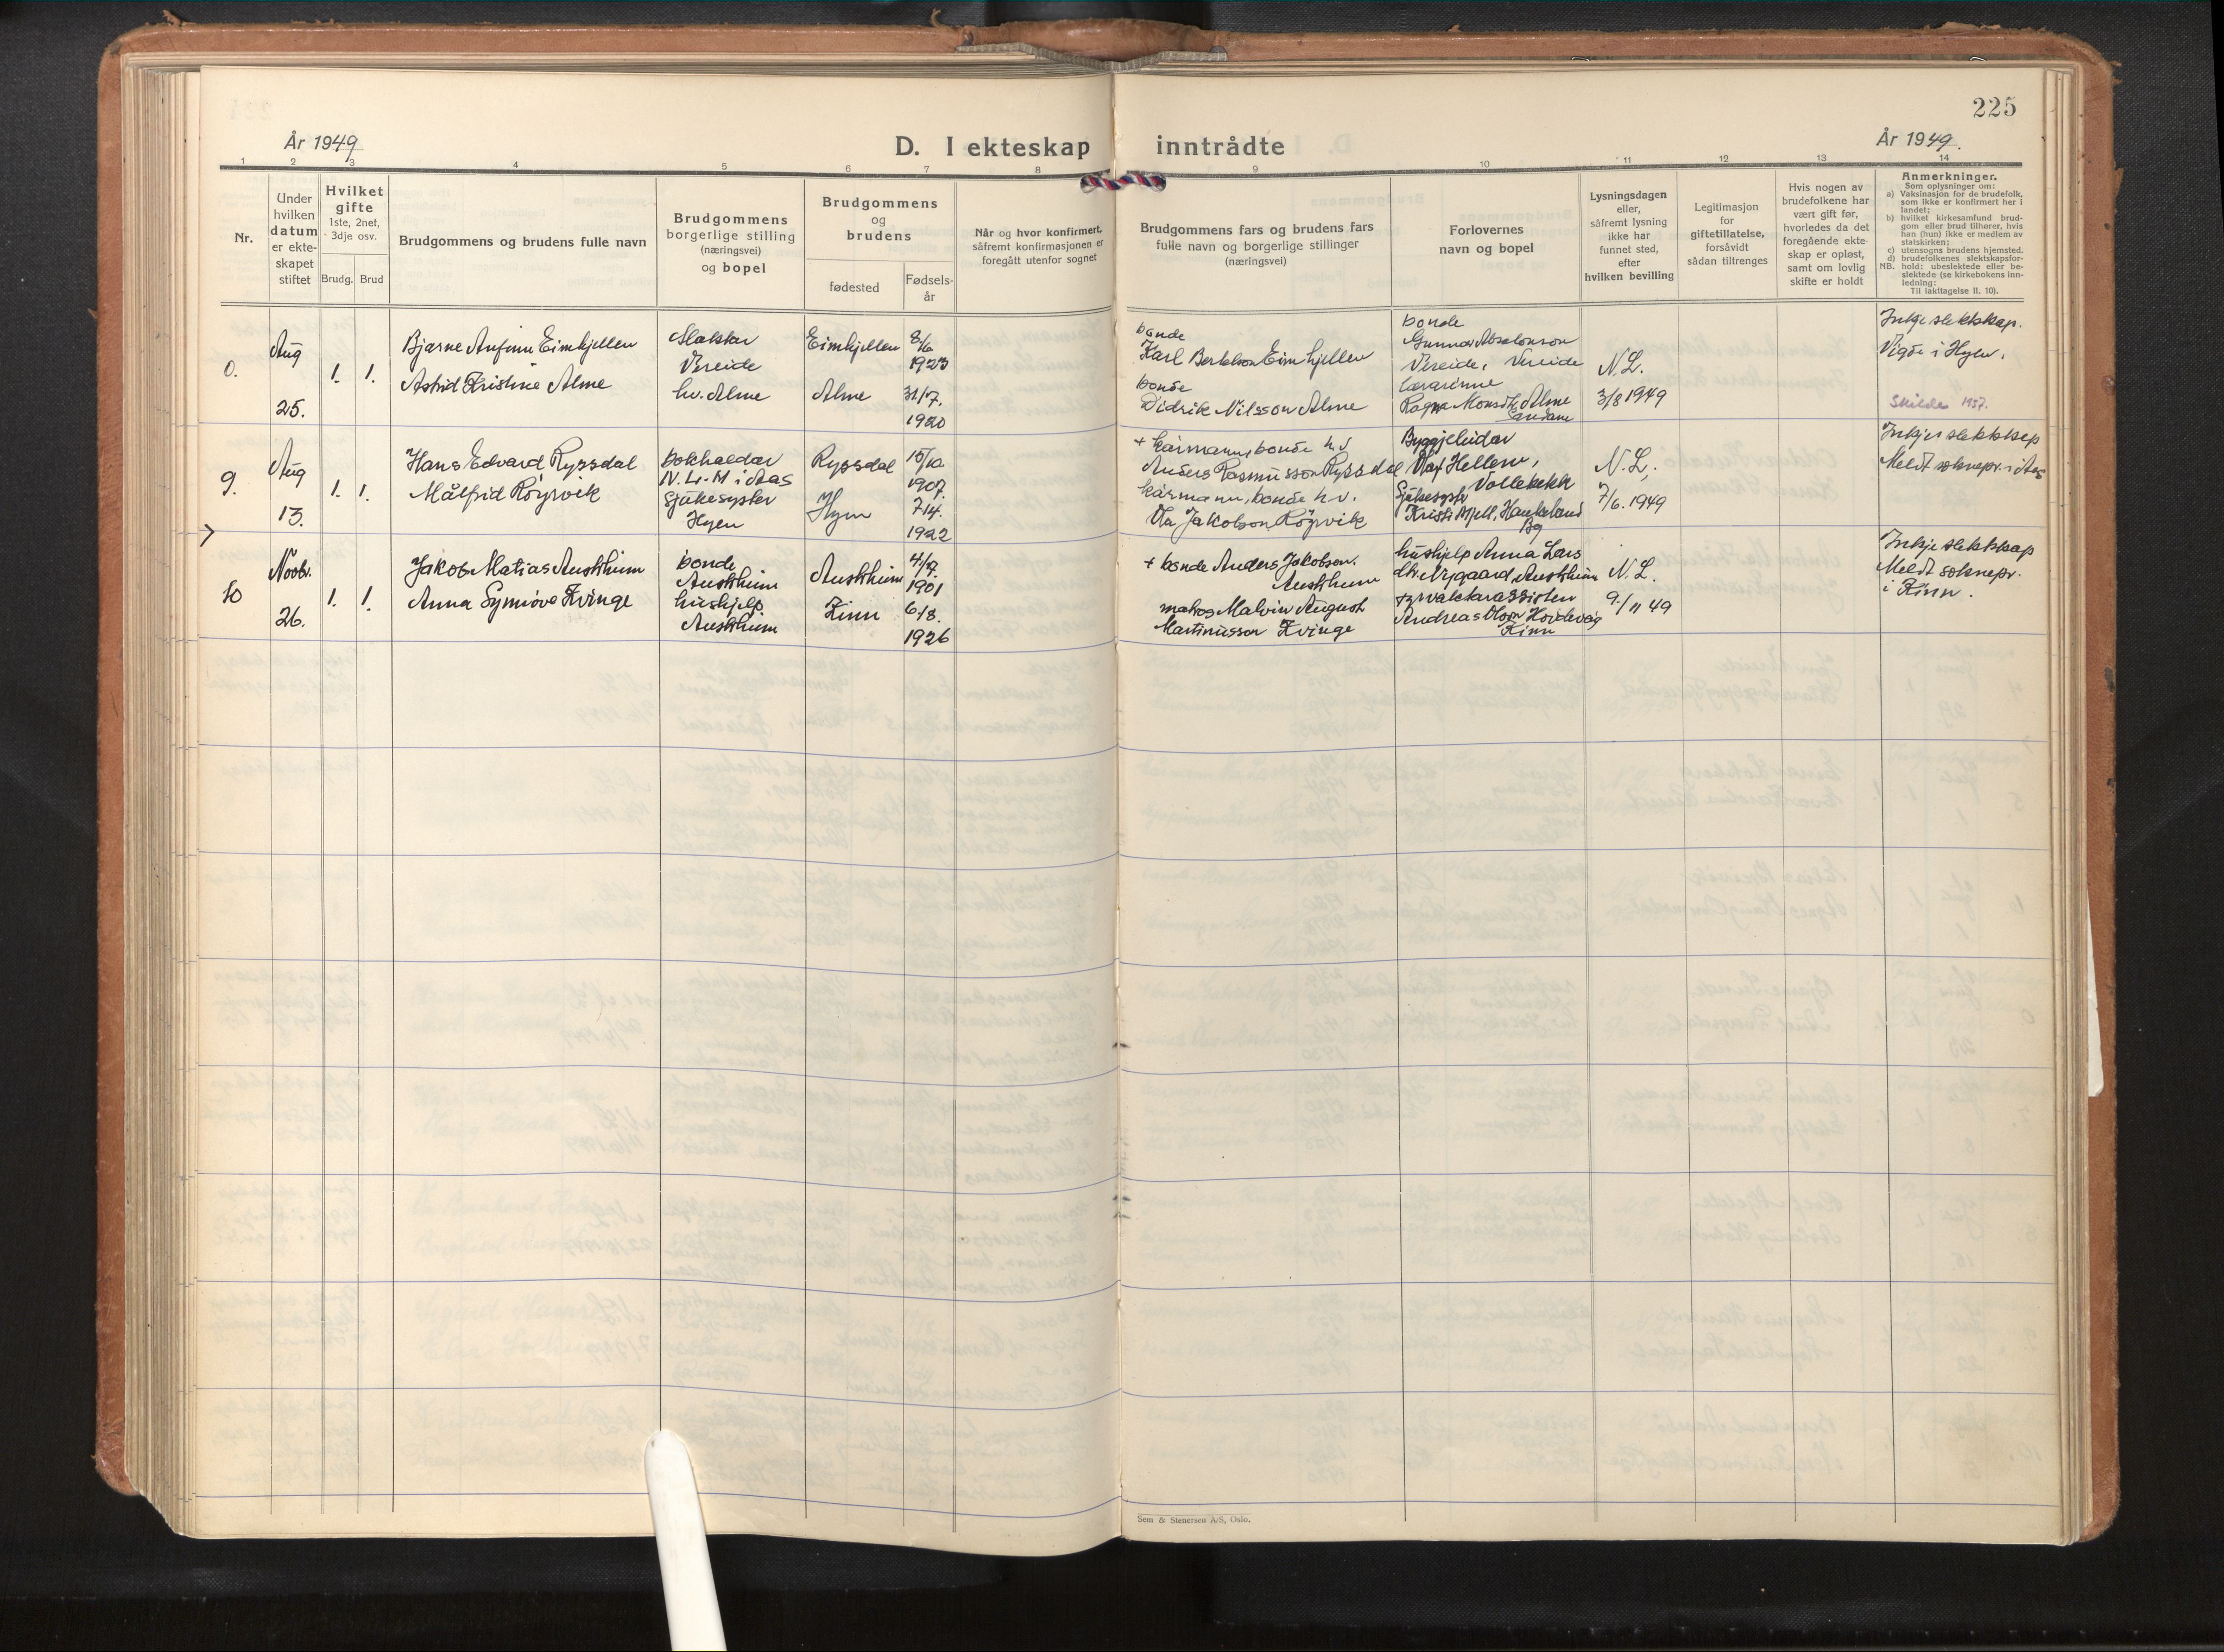 225
År 1949
D. I ekteskap inntrådte
År 1949.
1 2 3 4 5 6 7 8 9 10 11 12 13 14
Nr.
Under
hvilken
datum
er ekte-
skapet
stiftet
Hvilket
gifte
1ste, 2net,
3dje osv.
Brudg. Brud
Brudgommens og brudens fulle navn
Brudgommens
borgerlige stilling
(næringsvei)
og bopel
Brudgommens
og
brudens
fødested
Fødsels-
år
Når og hvor konfirmert,
såfremt konfirmasjonen er
foregått utenfor sognet
Brudgommens fars og brudens fars
fulle navn og borgerlige stillinger
(næringsvei)
Forlovernes
navn og bopel
Lysningsdagen
eller,
såfremt lysning
ikke har
funnet sted,
efter
hvilken bevilling
Legitimasjon
for
giftetillatelse,
forsåvidt
sådan tiltrenges
Hvis nogen av
brudefolkene har
vært gift før,
hvorledes da det
foregående ekte-
skap er opløst,
samt om lovlig
skifte er holdt
Anmerkninger.
Som oplysninger om:
a) Vaksinasjon for de brudefolk,
som ikke er konfirmert her i
landet;
b) hvilket kirkesamfund brud-
gom eller brud tilhører, hvis
han (hun) ikke er medlem av
statskirken;
c) utensogns brudens hjemsted.
d) brudefolkenes slektskapsfor-
NB. hold: ubeslektede eller be-
slektede (se kirkebokens inn-
ledning:
Til iakttagelse II. 10).
Aug
25.
1. 1.
Bjarne Anfinn Eimhjellen
Astrid Kristine Alme
Vereide
hv. Alme
Eimhjellen
Alme
8/6
1923
31/7.
1920
bonde
Karl Bertelson Eimhjellen
bonde
Didrik Nilsson Alme
bonde
Gunnar Absalonson
Vereide, Vereide
lærarinne
Ragna Monsdtr. Alme
Sandane
N.L.
3/8 1949
Inkje slektskap.
Vigde i Hyen.
Skilde 1957.
9.
Aug
13.
1. 1.
Hans Edvard Ryssdal
Målfrid Röyrvik
bokhaldar
N.L.M i Aas
Sjukesyster
Hyen
Ryssdal
Hyen
10/10
1907.
7/4.
1922
+ kårmann, bonde h.v
Anders Rasmusson Ryssdal
kårmann, bonde h.v.
Ola Jakobson Röyrvik
Byggjeleidar
Olaf Hellem,
Vollebekk
Sjukesyster
Kristi Mjell, Haukeland
Bg
N.L.
7/6. 1949
Inkje slektskap
Meldt soknepr. i Aas
10
Novbr.
26.
1. 1.
Jakob Matias Austrheim
Anna Synnöve Kvinge
bonde
Austrheim
hushjelp.
Austrheim
Austrheim
Kinn
1901
6/8.
1926
+ bonde Anders Jakobson.
Austrheim
Malvin August
Martinusson Kvinge
hushjelp Anna Lars
dtr. Nygaard, Austrheim
fyrvaktarassistent
Kinn
N.L.
9./11 49
Inkje slektskap
Meldt soknepr.
i Kinn.
Sem & Stenersen A/S, Oslo.